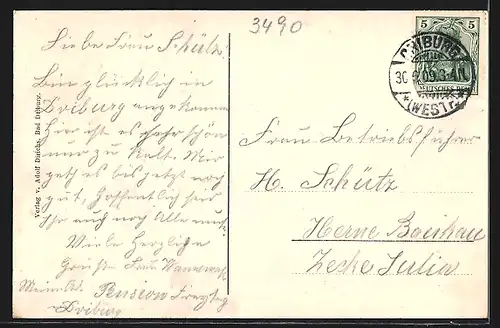 3490
Liebe Frau Schütz!
Bin glücklich in
Driburg angekommen
Hier ist es sehr schön
nur zu kalt. Mir
geht es bis jetzt noch
gut, hoffentlich seid
Ihr auch noch Alle
Viele Herzliche
Grüße Frau
Meine Ad. Pension
Driburg
Verlag v. Adolf Bad Driburg.
5 5
DRIBURG
30. 09. 3-4N
DEUTSCHES
(WESTF.)
Frau Betriebsführer
H. Schütz
Herne Baukau
Zeche Julia